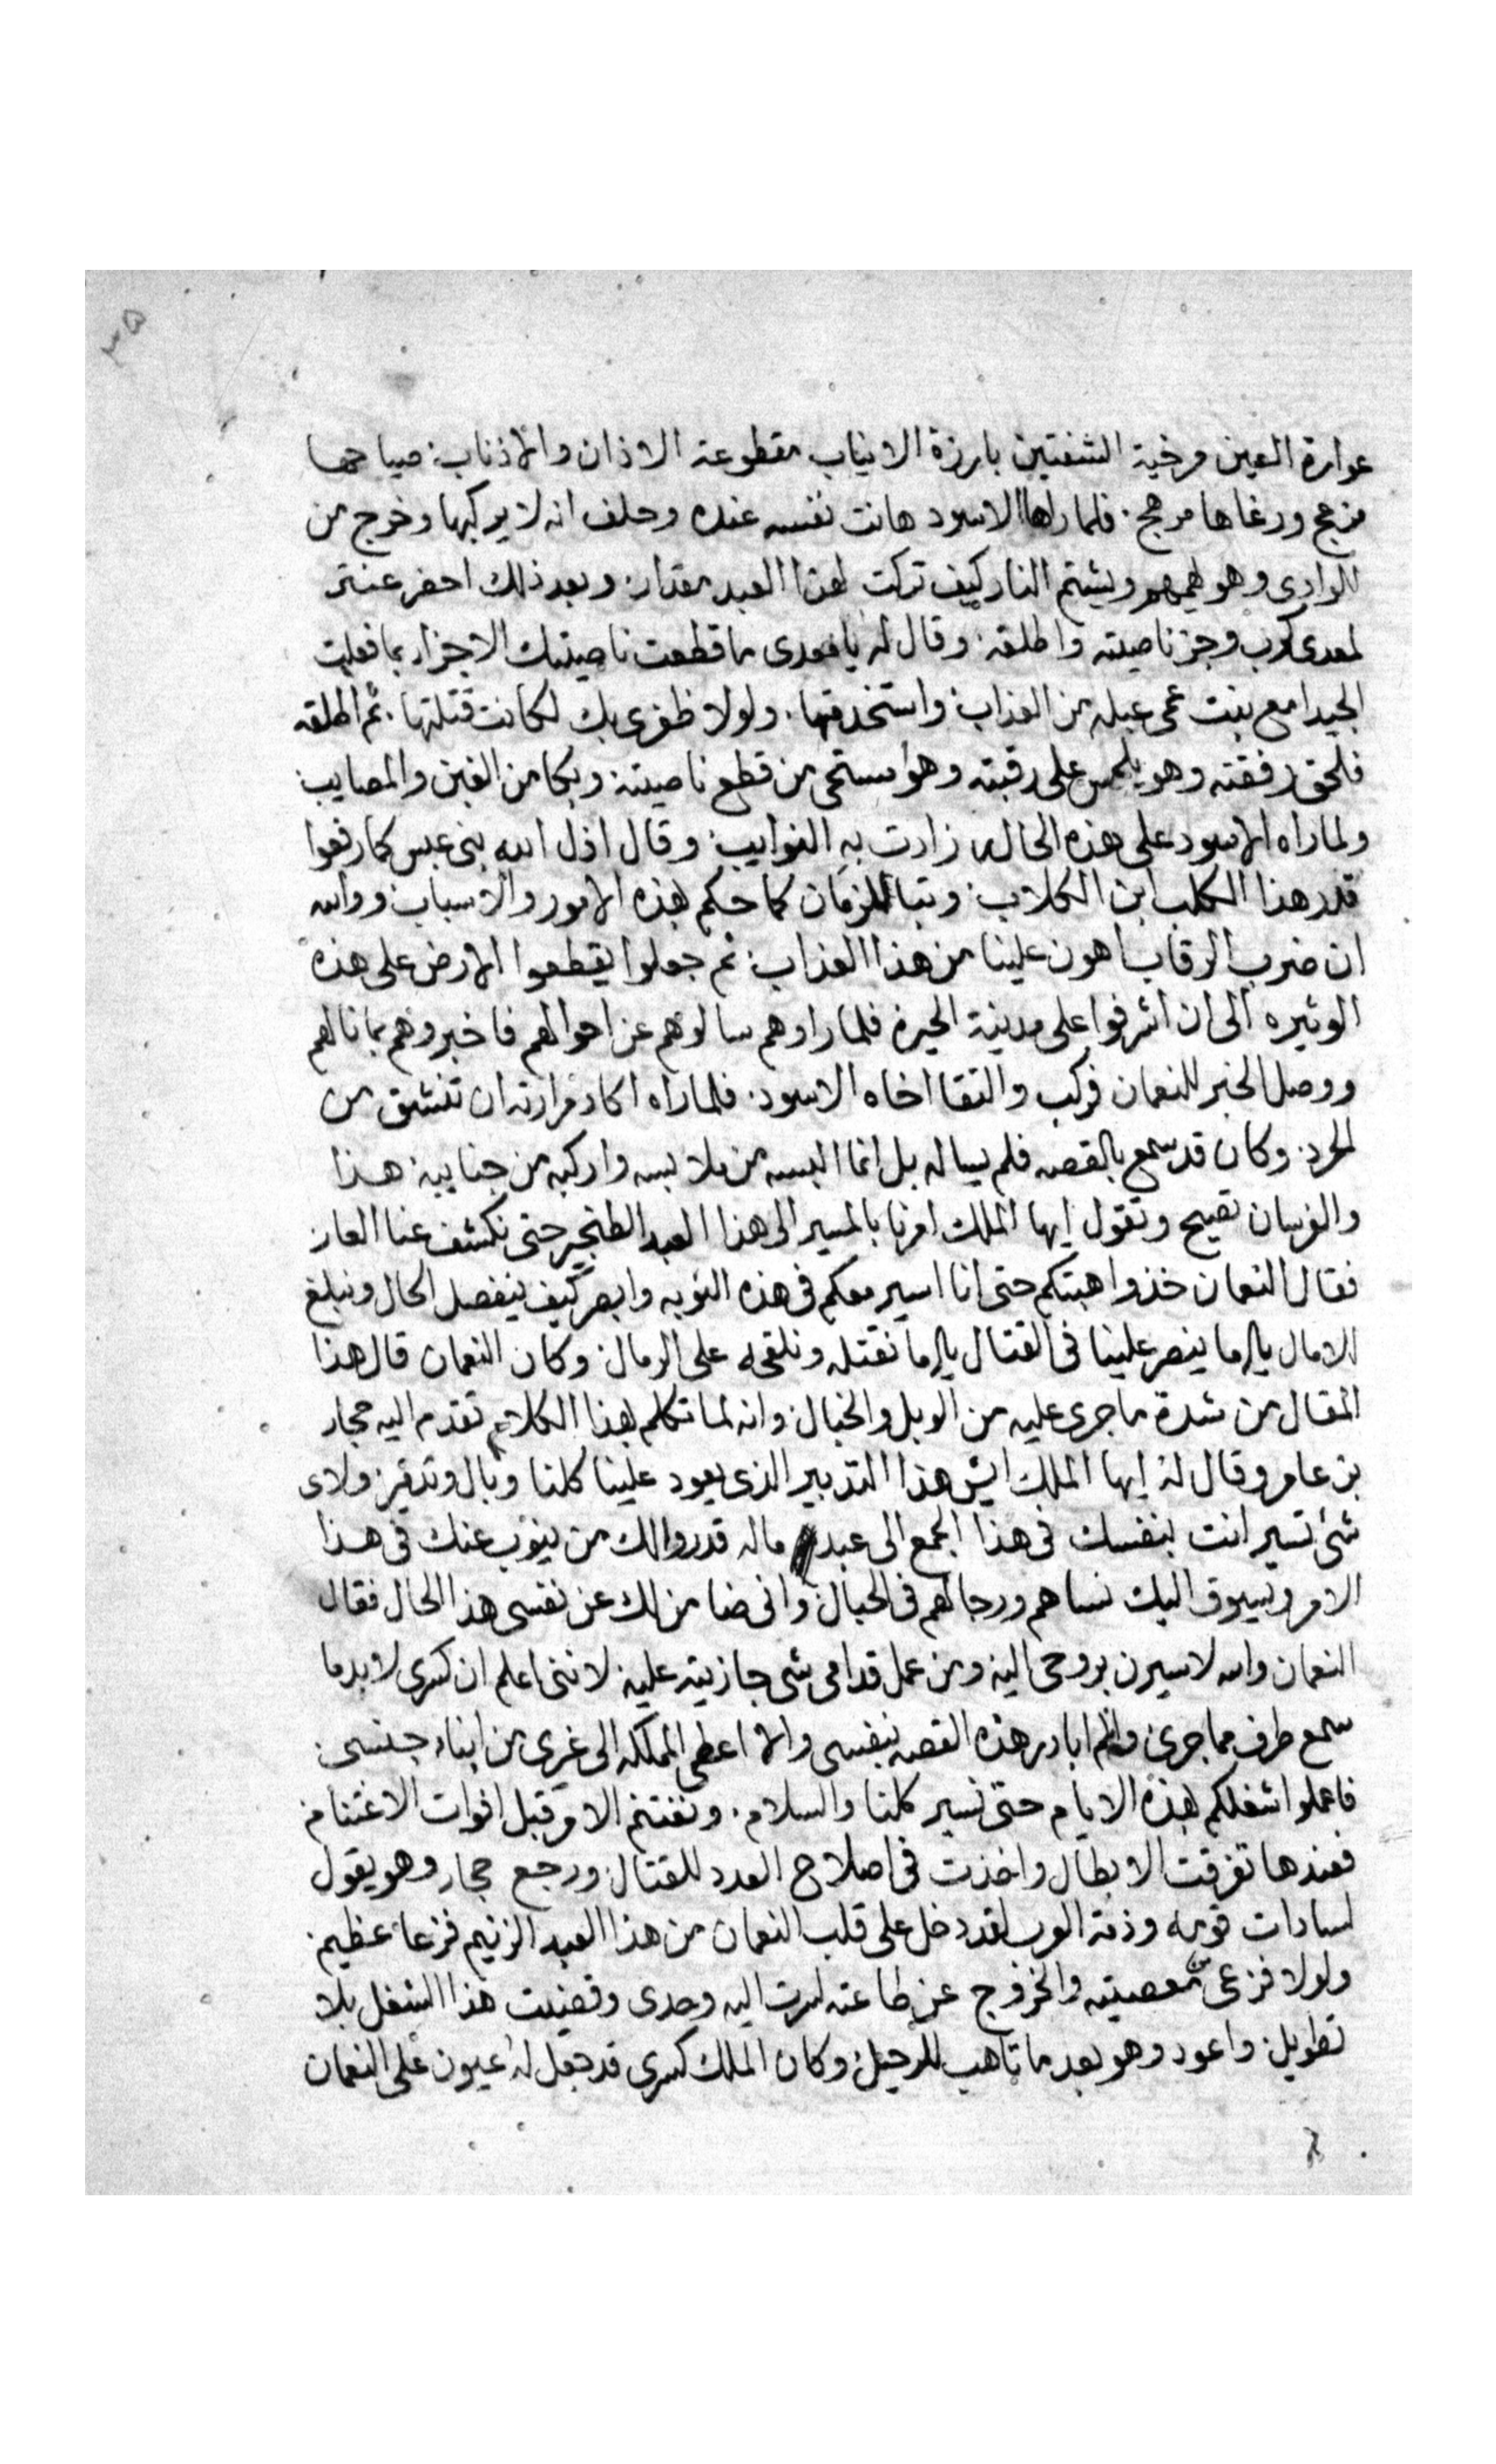 ٣٥
عوارة العين مرخية الشفتين بارزة الانياب مقطوعة الاذان والاذناب صياحها
مزعج ورغاها مرهج فلما راها الاسود هانت نفسه عنده وحلف انه لا يركبها وخرج من
الوادى وهو يهمهم ويشتم النار كيف تركت لهذا العبد مقدار وبعد ذلك احضر عنتر
لمعدى كرب وجز ناصيته واطلقه وقال له يا معدى ما قطعت ناصيتك الا جزاء بما فعلت
الجيدا مع بنت عمى عبله من العذاب واستخدمتها ولولا ظفرى بك لكانت قتلتها ثم اطلقه
فلحق رفقته وهو يلحمس على رقبته وهو مستحى من قطع ناصيته وبكا من الغبن والمصايب
ولما راه الاسود على هذه الحال زادت به النوايب وقال اذل الله بنى عبس كما رفعوا
قدر هذا الكلب ابن الكلاب وتبا للزمان كما حكم بهذه الامور والاسباب ووالله
ان ضرب الرقاب اهون علينا من هذا العذاب ثم جعلوا يقطعوا الارض على هذه
الوتيره الى ان اشرفوا على مدينة الحيرة فلما راوهم سالوهم عن احوالهم فاخبروهم بما نالهم
ووصل الخبر للنعمان فركب والتقا اخاه الاسود فلما راه اكاد مرارته ان تنشق من
الحرد وكان قد سمع بالقصه فلم يساله بل انما البسه من ملابسه واركبه من جنايبه هذا
والفرسان تصيح وتقول ايها الملك امرنا بالمسير الى هذا العبد الطنجير حتى نكشف عنا العار
فقال النعمان خذوا اهبتكم حتى انا اسير معكم فى هذه النوبه وابصر كيف ينفصل الحال ونبلغ
الامال يا اما ينصر علينا فى القتال يا اما نقتله ونلقى له على الرمال وكان النعمان قال هذا
المقال من شدة ما جرى عليه من الوبل والخبال وانه لما تكلم بهذا الكلام تقدم اليه حجار
بن عامر وقال له ايها الملك ايش هذا التدبير الذى يعود علينا كلنا وبال وتدمير ولاى
شئ تسير انت بنفسك فى هذا الجمع الى عبد ماله قدر ولك من ينوب عنك فى هذا
الامر ويسوق اليك نساهم ورجالهم فى الحبال وانى ضامن لك عن نفسى هذا الحال فقال
النعمان والله لاسيرن بروحى اليه ومن عمل قدامى شى جازيته عليه لاننى اعلم ان كسرى لابد ما
سمع طرف مما جرى وان لم ابادر هذه القصه بنفسى والا اعطى المملكه الى غيرى من ابناء جنسى
فاعملوا اشغلكم بهذه الايام حتى نسير كلنا والسلام ونغتنم الامر قبل افوات الاغتنام
فعندها تفرقت الابطال واخذت فى اصلاح العدد للقتال ورجع حجار وهو يقول
لسادات قومه وذمة العرب لقد دخل على قلب النعمان من هذا العبد الزنيم فزعا عظيم
ولولا فزعى من معصيته والخروج عن طاعته لسرت اليه وحدى وقضيت هذا الشغل بلا
تطويل واعود وهو بعد ما تاهب للرحيل وكان الملك كسرى قد جعل له عيون على النعمان